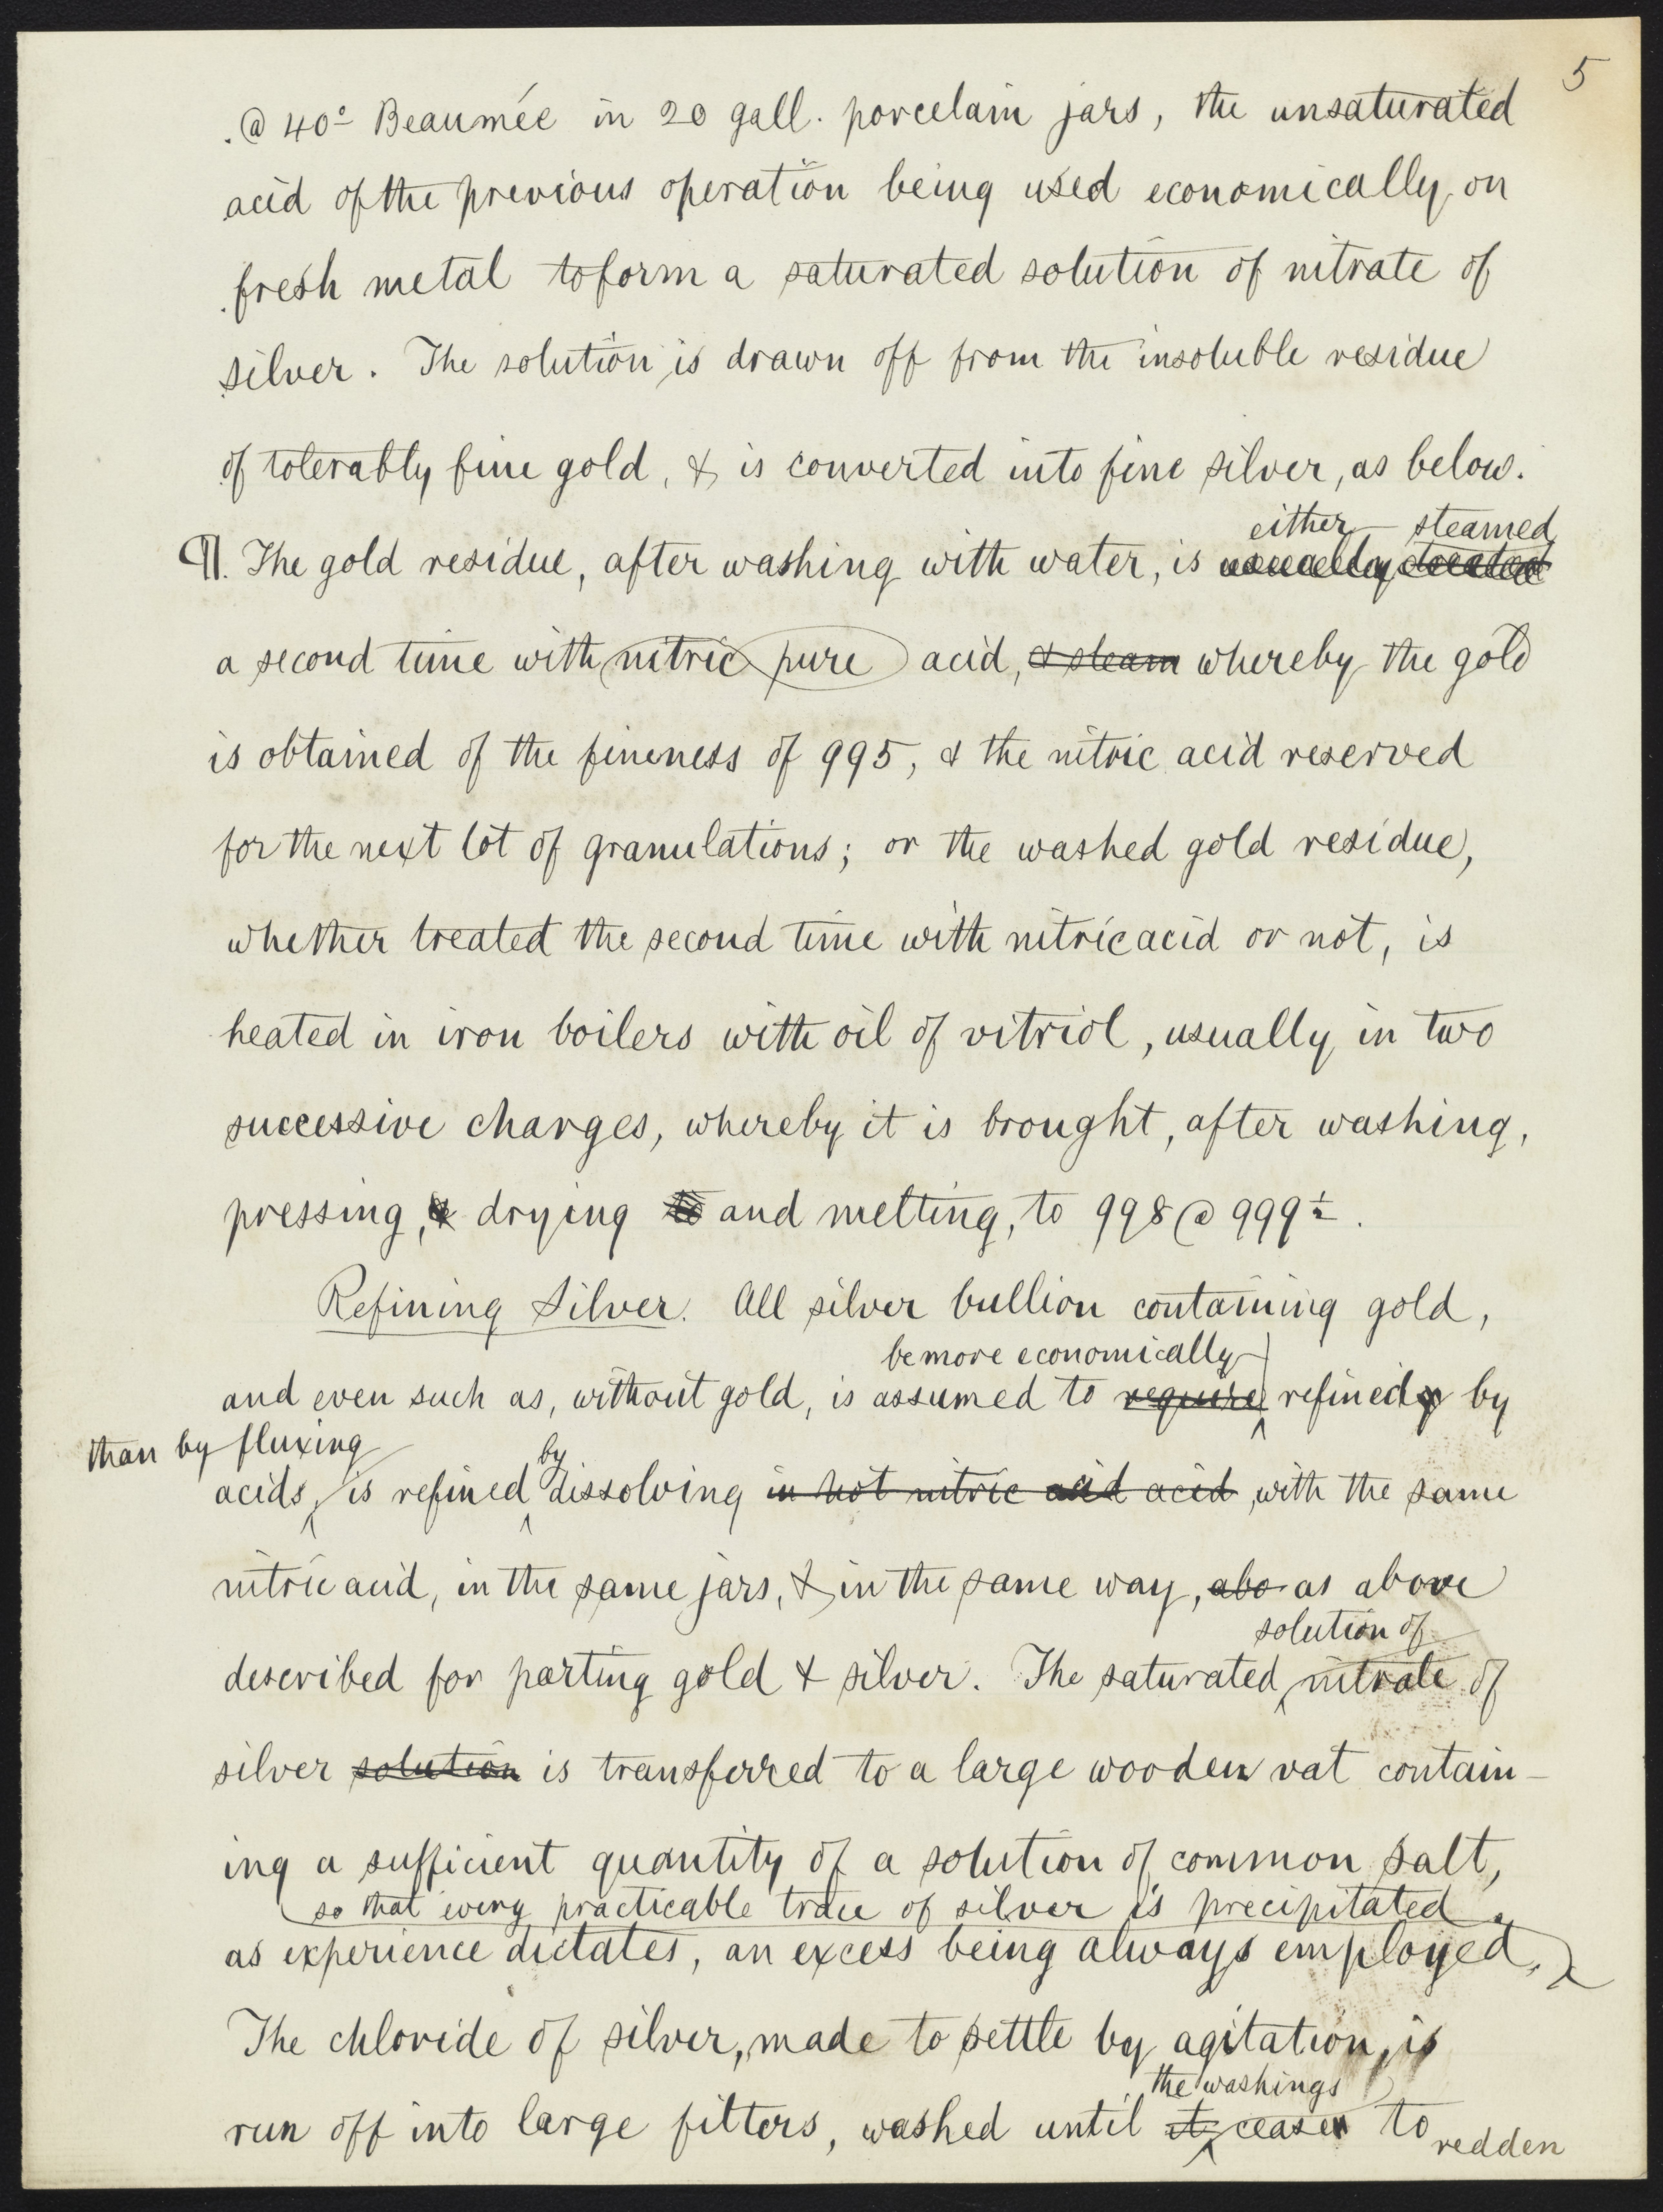 5
@ 40° Beaumée in 20 gall. porcelain jars, the unsaturated
acid of the previous operation being used economically on
fresh metal to form a saturated solution of nitrate of
silver. The solution is drawn off from the insoluble residue
of tolerably fine gold, & is converted into fine silver, as below.
either steamed
¶. The gold residue, after washing with water, is usually treated
a second time with nitric pure acid, & steam whereby the gold
is obtained of the fineness of 995, & the nitric acid reserved
for the next lot of granulations; or the washed gold residue,
whether treated the second time with nitric acid or not, is
heated in iron boilers with oil of vitriol, usually in two
successive charges, whereby it is brought, after washing,
pressing, & drying to and melting, to 998 @ 999½.
Refining Silver. All silver bullion containing gold,
be more economically
and even such as, without gold, is assumed to require refined by
than by fluxing
by
acids, is refined dissolving in hot nitric acid acid, with the same
nitric acid, in the same jars, & in the same way, abo as above
solution of
described for parting gold & silver. The saturated nitrate of
silver solution is transferred to a large wooden vat contain-
ing a sufficient quantity of a solution of common salt,
so that every practicable trace of silver is precipitated.
as experience dictates, an excess being always employed,
The chloride of silver, made to settle by agitation, is
the washings
run off into large filters, washed until it cease to redden